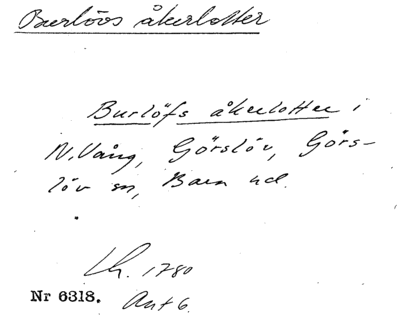 Burlövs åkerlotter
Burlöfs åkerlotter i
N. Vång, Görslöv, Görs-
löv sn, Bara hd.
Lh. 1780
Nr 6318. Ant 6.